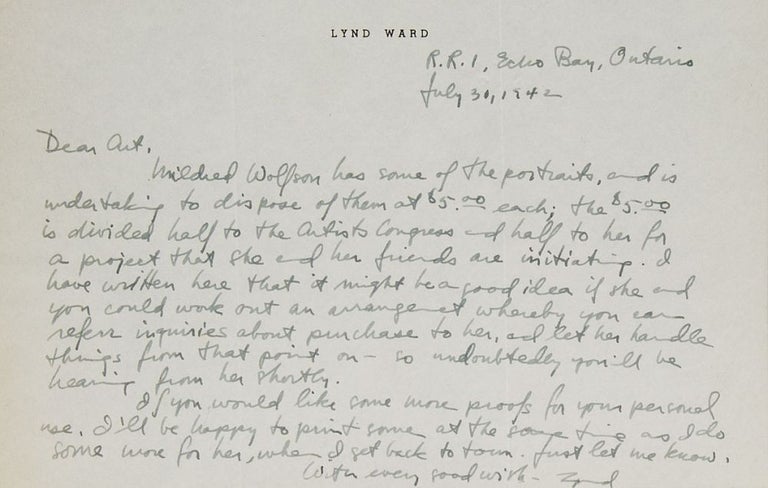 LYND WARD
R.R.1, Echo Bay, Ontario
July 30, 1942
Dear Art,
Mildred Wolfson has some of the portraits, and is
undertaking to dispose of them at $5.00 each; the $5.00
is divided half to the Artists Congress and half to her for
a project that she and her friends are initiating. I
have written here that it might be a good idea if she and
you could work out an arrangement whereby you can
referr inquiries about purchase to her, and let her handle
things from that point on – so undoubtedly you'll be
hearing from her shortly.
If you would like some more proofs for your personal
use, I'll be happy to print some at the same time as I do
some more for her, when I get back to town. Just let me know.
With every good wish – Lynd